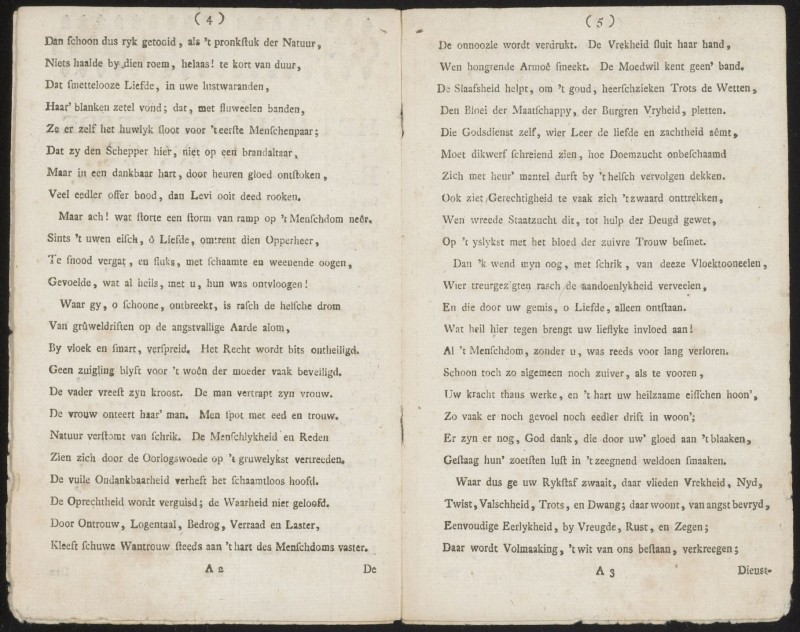 ( 4 )
Dan ſchoon dus ryk getooid, als 't pronkſtuk der Natuur,
Niets haalde by dien roem, helaas! te kort van duur,
Dat ſmettelooze Liefde, in uwe luſtwaranden,
Haar' blanken zetel vond; dat, met fluweelen banden,
Ze er zelf het huwlyk ſloot voor 't eerſte Menſchenpaar;
Dat zy den Schepper hier, niet op een brandaltaar,
Maar in een dankbaar hart, door heuren gloed ontſtoken,
Veel eedler offer bood, dan Levi ooit deed rooken.
Maar ach! wat ſtorte een ſtorm van ramp op 't Menſchdom neêr.
Sints 't uwen eiſch, ô Liefde, omtrent dien Opperheer,
Te ſnood vergat, en fluks, met ſchaamte en weenende oogen,
Gevoelde, wat al heils, met u, hun was ontvloogen!
Waar gy, o ſchoone, ontbreekt, is raſch de helſche drom
Van grûweldriften op de angstvallige Aarde alom,
By vloek en ſmart, verſpreid. Het Recht wordt bits ontheiligd.
Geen zuigling blyft voor 't woên der moeder vaak beveiligd.
De vader vreeſt zyn kroost. De man vertrapt zyn vrouw.
De vrouw onteert haar' man. Men ſpot met eed en trouw.
Natuur verſtomt van ſchrik. De Menſchlykheid en Reden
Zien zich door de Oorlogswoede op 't gruwelykst vertreeden.
De vuile Ondankbaarheid verheft het ſchaamtloos hoofd.
De Oprechtheid wordt verguisd; de Waarheid niet geloofd.
Door Ontrouw, Logentaal, Bedrog, Verraad en Laster,
Kleeft ſchuwe Wantrouw ſteeds aan 't hart des Menſchdoms vaster.
A 2 De
( 5 )
De onnoozle wordt verdrukt. De Vrekheid ſluit haar hand,
Wen hongrende Armoê ſmeekt. De Moedwil kent geen' band.
De Slaafsheid helpt, om 't goud, heerſchzieken Trots de Wetten,
Den Bloei der Maatſchappy, der Burgren Vryheid, pletten.
Die Godsdienst zelf, wier Leer de liefde en zachtheid aêmt,
Moet dikwerf ſchreiend zien, hoe Doemzucht onbeſchaamd
Zich met heur' mantel durft by 't helſch vervolgen dekken.
Ook ziet Gerechtigheid te vaak zich 't zwaard onttrekken,
Wen wreede Staatzucht dit, tot hulp der Deugd gewet,
Op 't yslykst met het bloed der zuivre Trouw beſmet.
Dan 'k wend myn oog, met ſchrik, van deeze Vloektooneelen,
Wier treurgezigten rasch de aandoenlykheid verveelen,
En die door uw gemis, o Liefde, alleen ontſtaan.
Wat heil hier tegen brengt uw lieflyke invloed aan!
Al 't Menſchdom, zonder u, was reeds voor lang verloren.
Schoon toch zo algemeen noch zuiver, als te vooren,
Uw kracht thans werke, en 't hart uw heilzaame eiſſchen hoon',
Zo vaak er noch gevoel noch eedler drift in woon';
Er zyn er nog, God dank, die door uw' gloed aan 't blaaken,
Geſtaag hun' zoetſten luſt in 't zeegnend weldoen ſmaaken.
Waar dus ge uw Rykſtaf zwaait, daar vlieden Vrekheid, Nyd,
Twist, Valschheid, Trots, en Dwang; daar woont, van angst bevryd,
Eenvoudige Eerlykheid, by Vreugde, Rust, en Zegen;
Daar wordt Volmaaking, 't wit van ons beſtaan, verkreegen;
A 3 Dienst-